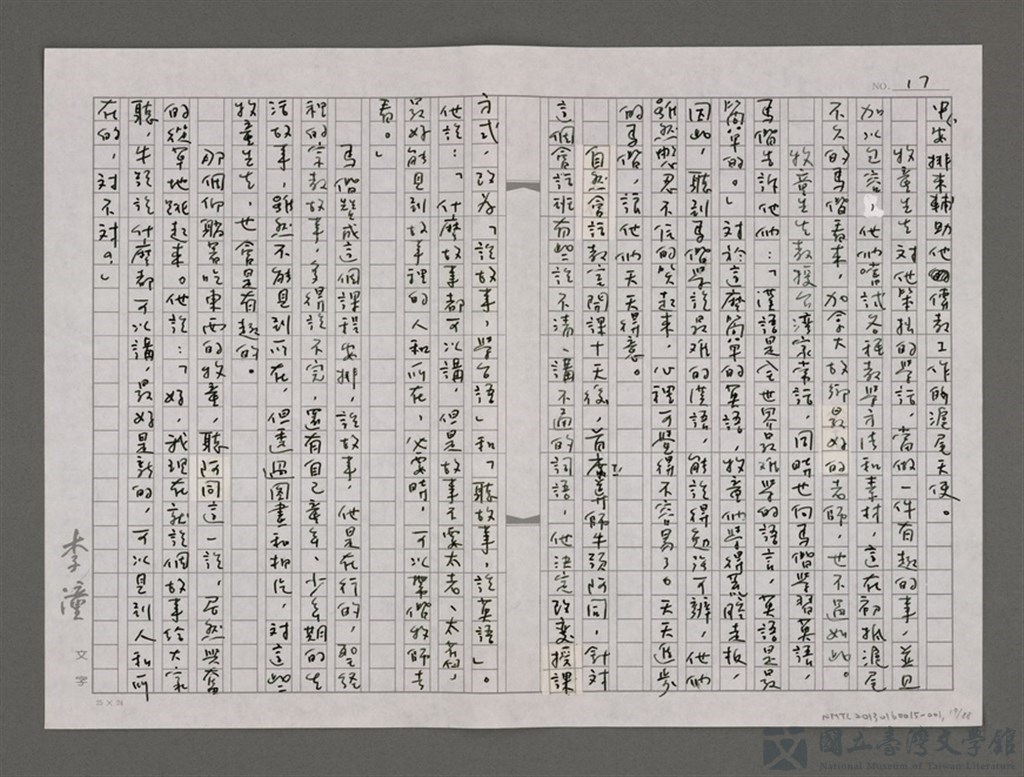 NO. 17
中安排來輔助他傳教工作的滬尾天使。
牧童先生對他笨拙的學話,當做一件有趣的事,並且
加以包容,他們嘗試各種教學方法和素材,這在初抵滬尾
不久的馬偕看來,加拿大故鄉最好的老師,也不過如此。
牧童先生教授台灣家常話,同時也向馬偕學習英語,
馬偕告訴他們:「漢語是全世界最難學的語言,英語是最
簡單的。」對於這麼簡單的英語,牧童他們學得荒腔走板,
因此,聽到馬偕學說最難的漢語,能說得勉強可辨,他們
雖然忍不住的笑起來,心裡可覺得不容易了。天天進步
的馬偕,讓他們天天得意。
自然會話教室開課十天後,首席講師牛頭阿同,針對
這個會話班有些說不清、講不通的詞語,他決定改變授課
方式,改為「說故事,學台語」和「聽故事,說英語」。
他說:「什麼故事都可以講,但是故事不要太老、太舊,
最好能見到故事裡的人和所在,必要時,可以帶偕牧師去
看。」
馬偕贊成這個課程安排,說故事,他是在行的,聖經
裡的宗教故事,多得說不完,還有自己童年、少年期的生
活故事,雖然不能見到所在,但透過圖畫和相片,對這些
牧童先生,也會是有趣的。
那個仰躺著吃東西的牧童,聽阿同這一說,居然興奮
的從草地跳起來。他說:「好,我現在就說個故事給大家
聽,牛頭說什麼都可以講,最好是新的,可以見到人和所
在的,對不對?」
李潼
文字
25×24
NMTL20130160015-001, 17/28
國立臺灣文學館
National Museum of Taiwan Literature